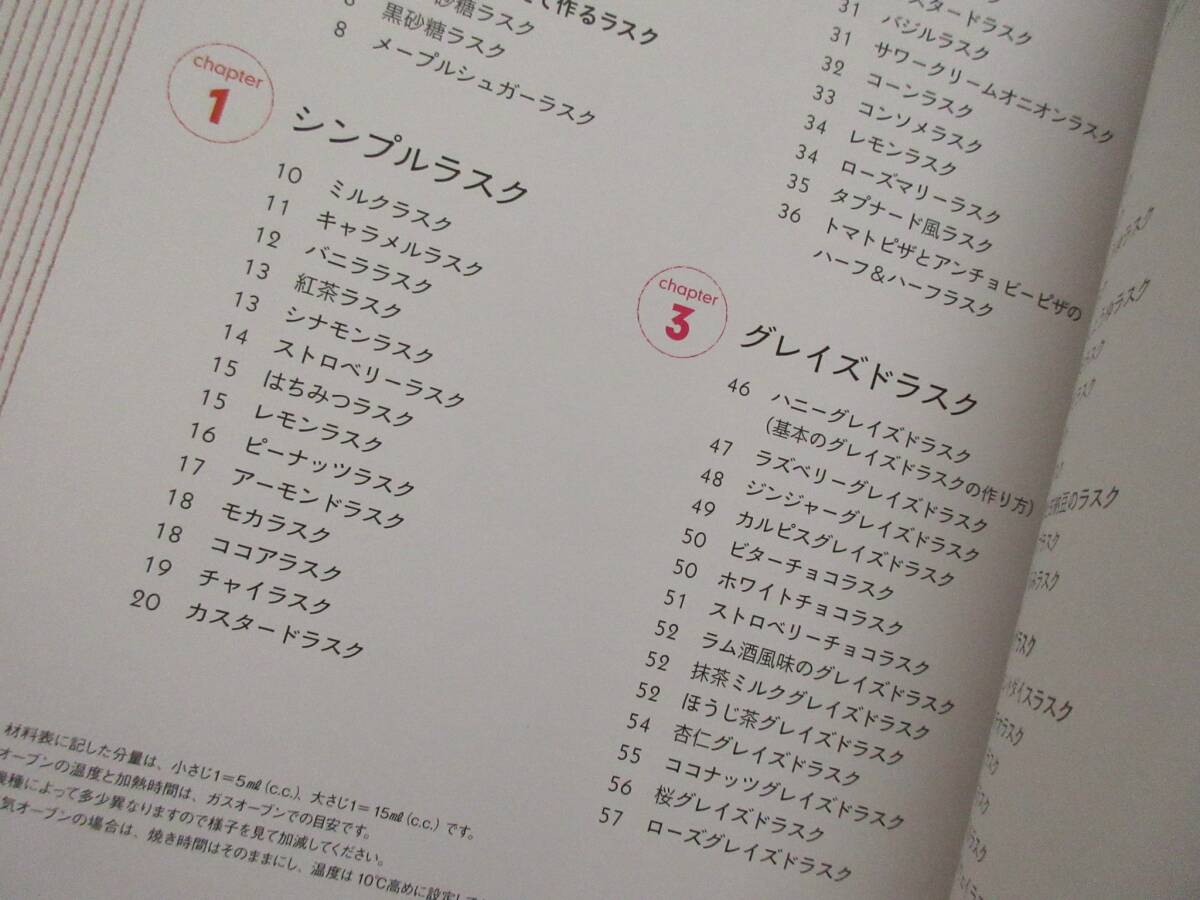 て作るラスク
砂糖ラスク
黒砂糖ラスク
8 メープルシュガーラスク
chapter
1
シンプルラスク
10 ミルクラスク
11 キャラメルラスク
12 バニララスク
13 紅茶ラスク
13 シナモンラスク
14 ストロベリーラスク
15 はちみつラスク
15 レモンラスク
16 ピーナッツラスク
17 アーモンドラスク
18 モカラスク
18 ココアラスク
19 チャイラスク
20 カスタードラスク
材料表に記した分量は、小さじ1=5㎖(c.c.)、大さじ1=15㎖(c.c.)です。
オーブンの温度と加熱時間は、ガスオーブンでの目安です。
機種によって多少異なりますので様子を見て加減してください。
気オーブンの場合は、焼き時間はそのままにし、温度は10℃高めに設定して
スタードラスク
31 バジルラスク
31 サワークリームオニオンラスク
32 コーンラスク
33 コンソメラスク
34 レモンラスク
34 ローズマリーラスク
35 タプナード風ラスク
36 トマトピザとアンチョビーピザの
ハーフ&ハーフラスク
chapter
3
グレイズドラスク
46 ハニーグレイズドラスク
(基本のグレイズドラスクの作り方)
47 ラズベリーグレイズドラスク
48 ジンジャーグレイズドラスク
49 カルピスグレイズドラスク
50 ビターチョコラスク
50 ホワイトチョコラスク
51 ストロベリーチョコラスク
52 ラム酒風味のグレイズドラスク
52 抹茶ミルクグレイズドラスク
52 ほうじ茶グレイズドラスク
54 杏仁グレイズドラスク
55 ココナッツグレイズドラスク
56 桜グレイズドラスク
57 ローズグレイズドラスク
のラスク
ダイスラスク